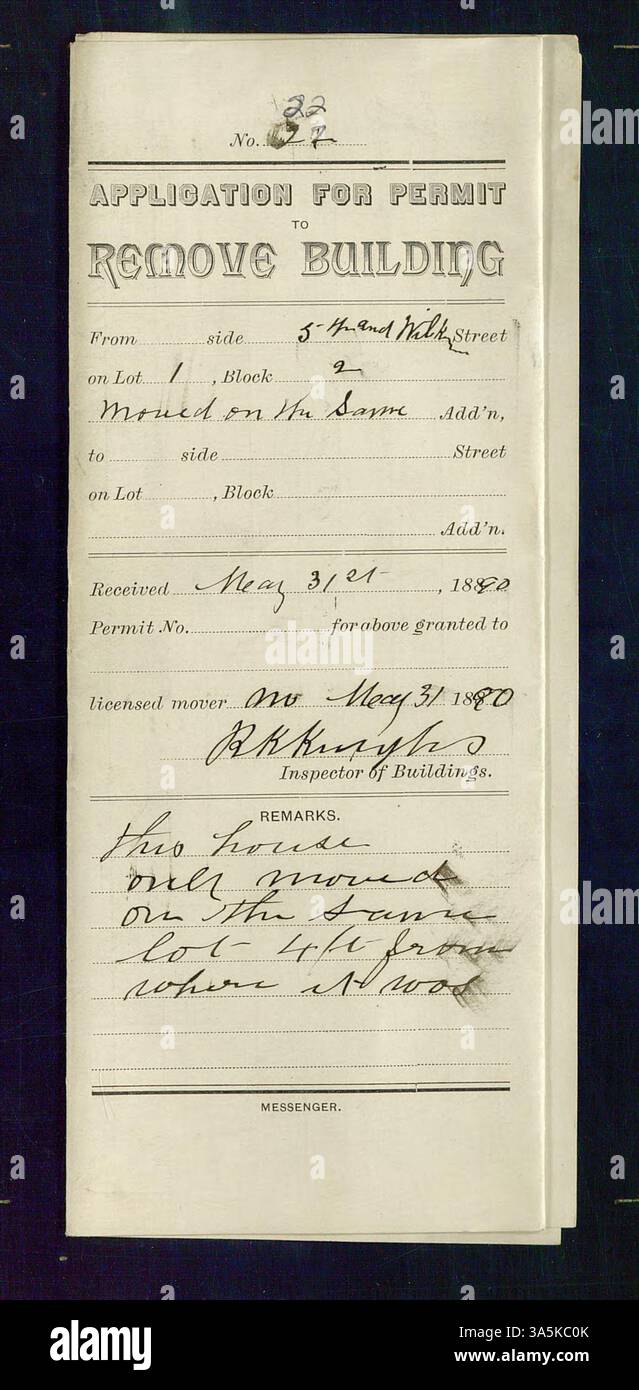 22
No. 27
APPLICATION FOR PERMIT
TO
REMOVE BUILDING
From side 5th and Wilkn Street
on Lot 1, Block 2
moved on the Same Add'n,
to side Street
on Lot , Block
Add'n.
Received May 31st, 1890
Permit No. for above granted to
licensed mover no May 31 1890
Inspector of Buildings.
REMARKS.
this house
only moved
on the same
lot 4ft from
where it was
MESSENGER.
alamy
Image ID: 3A5KC0K
www.alamy.com